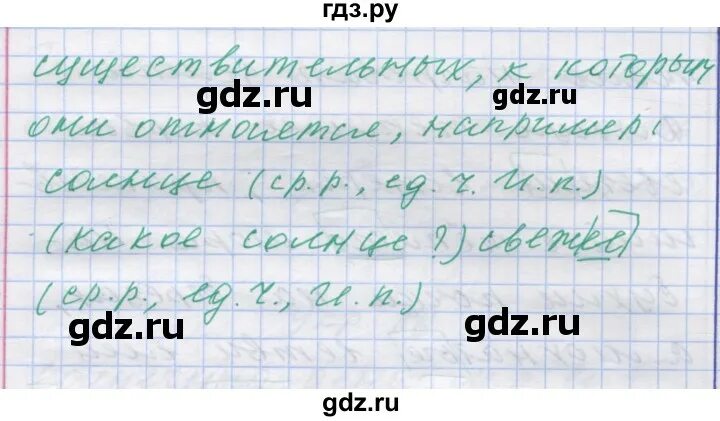 гдз.ру
существительных, к которым
gdz.ru gdz.ru
они относятся, например:
солнце (ср.р., ед. ч. И. п.)
(какое солнце?) свежее
gdz.ru gdz.ru
(ср.р., ед. ч., И. п.)
gdz.ru gdz.ru
gdz.ru